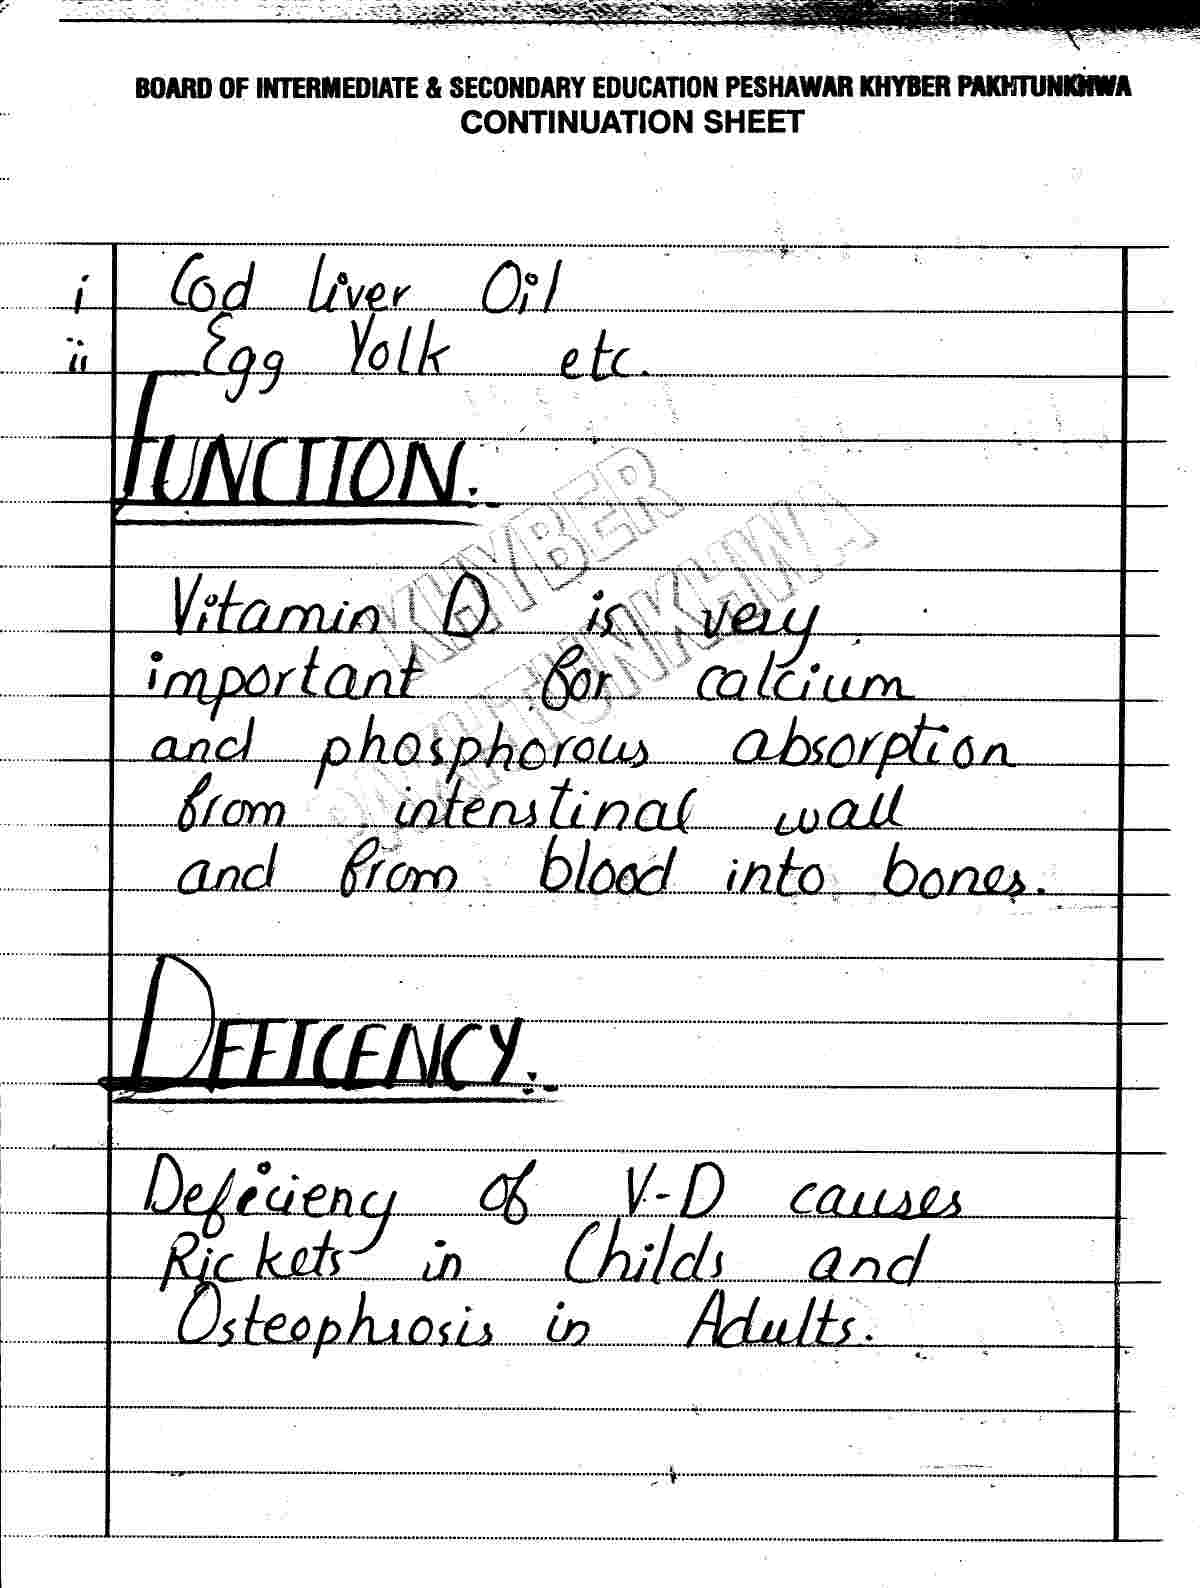 BOARD OF INTERMEDIATE & SECONDARY EDUCATION PESHAWAR KHYBER PAKHTUNKHWA
CONTINUATION SHEET
i Cod Liver Oil
ii Egg Yolk etc.
FUNCTION.
KHYBER
PAKHTUNKHWA
Vitamin D is very
important for calcium
and phosphorous absorption
from intenstinal wall
and from blood into bones.
DEFICENCY.
Deficieny of V-D causes
Rickets in Childs and
Osteophrosis in Adults.